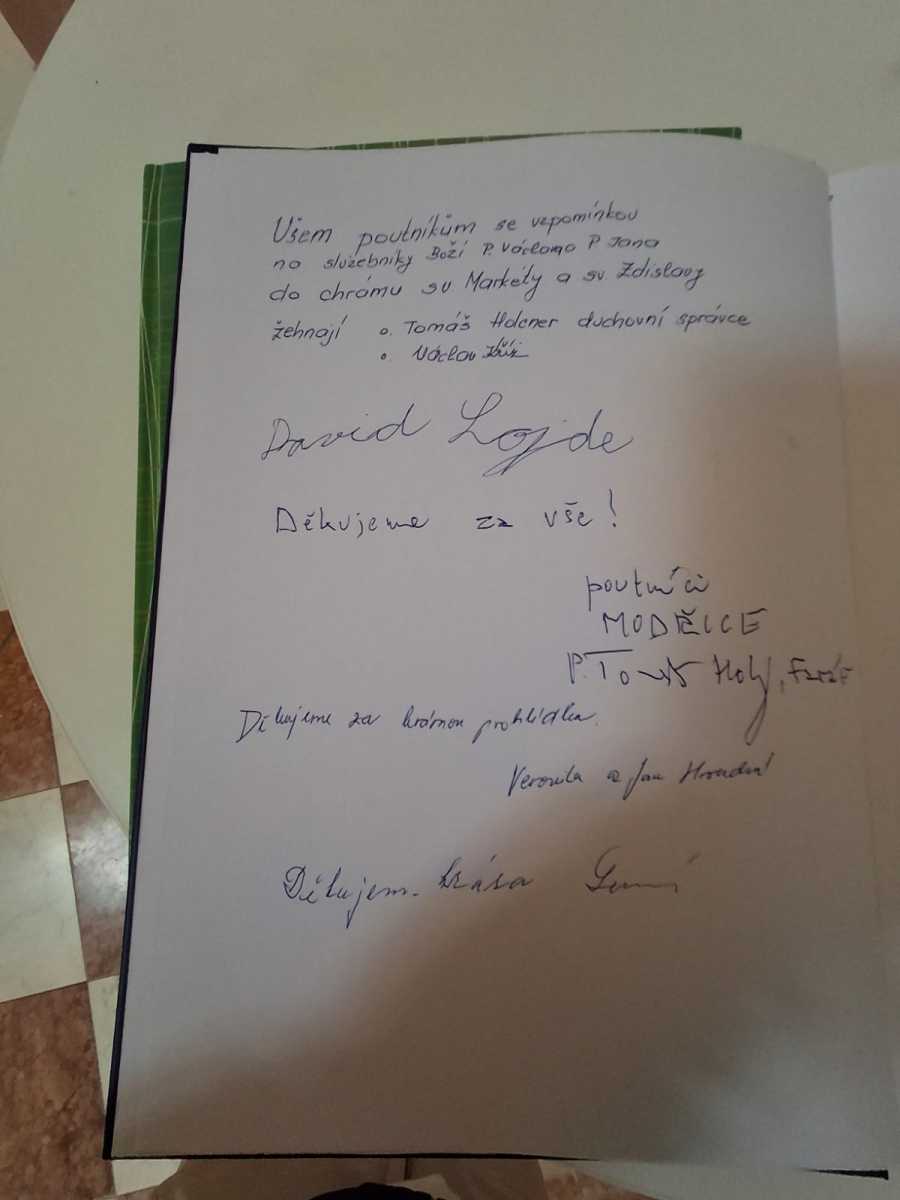 Všem poutníkům se vzpomínkou
na služebníky Boží P. Václama P Jana
do chrámu sv Markéty a sv Zdislavy
žehnají o. Tomáš Holcner duchovní správce
o. Václav Kříž
David Lojde
Děkujeme za vše!
poutníci
MODĚICE
P. Holý, Farář
Děkujeme za krásnou prohlídku.
Veronika a Jan
Děkujem. krása